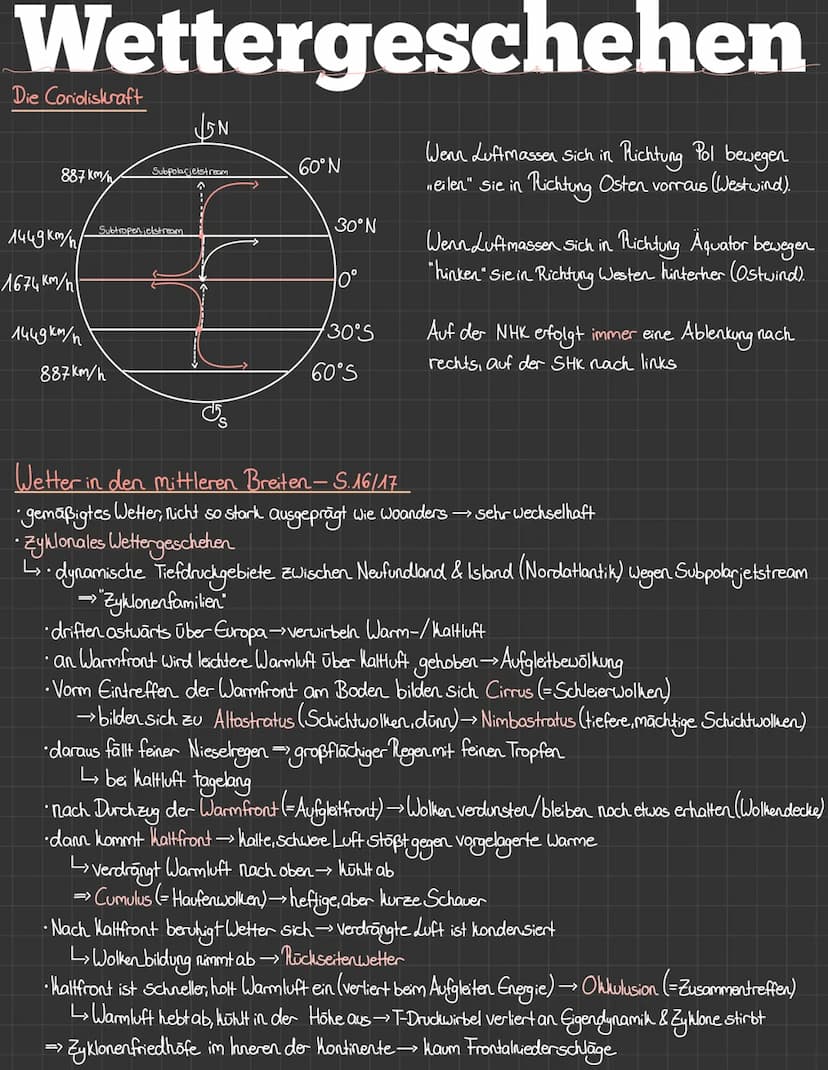 Wettergeschehen
Die Corioliskraft
N
887 km/h
Subpolarjetstream
60°N
1449 km/h
Subtropenjetstream
30°N
1674 km/h
0°
1449 km/h
30°S
887 km/h
60°S
S
Wenn Luftmassen sich in Richtung Pol bewegen
„eilen" sie in Richtung Osten vorraus (Westwind).
Wenn Luftmassen sich in Richtung Äquator bewegen
"hinken" sie in Richtung Westen hinterher (Ostwind).
Auf der NHK erfolgt immer eine Ablenkung nach
rechts, auf der SHK nach links
Wetter in den mittleren Breiten – S.16/17
· gemäßigtes Wetter, nicht so stark ausgeprägt wie woanders → sehr wechselhaft
· Zyklonales Wettergeschehen
↳ · dynamische Tiefdruckgebiete zwischen Neufundland & Island (Nordatlantik) wegen Subpolarjetstream
⇒ "Zyklonenfamilien"
· driften ostwärts über Europa → verwirbeln Warm-/Kaltluft
· an Warmfront wird leichtere Warmluft über Kaltluft gehoben → Aufgleitbewölkung
· Vorm Eintreffen der Warmfront am Boden bilden sich Cirrus (=Schleierwolken)
→ bilden sich zu Altostratus (Schichtwolken, dünn) → Nimbostratus (tiefere, mächtige Schichtwolken)
· daraus fällt feiner Nieselregen ⇒ großflächiger Regen mit feinen Tropfen
↳ bei Kaltluft tagelang
· nach Durchzug der Warmfront (=Aufgleitfront) → Wolken verdunsten/bleiben noch etwas erhalten (Wolkendecke)
· dann kommt Kaltfront → kalte, schwere Luft stößt gegen vorgelagerte Warme
↳ verdrängt Warmluft nach oben → kühlt ab
⇒ Cumulus (= Haufenwolken) → heftige, aber kurze Schauer
· Nach Kaltfront beruhigt Wetter sich → verdrängte Luft ist kondensiert
↳ Wolkenbildung nimmt ab → Rückseitenwetter
· Kaltfront ist schneller, holt Warmluft ein (verliert beim Aufgleiten Energie) → Okkulusion (=Zusammentreffen)
↳ Warmluft hebt ab, kühlt in der Höhe aus → T-Druckwirbel verliert an Eigendynamik & Zyklone stirbt
⇒ Zyklonenfriedhöfe im Inneren der Kontinente → kaum Frontalniederschläge